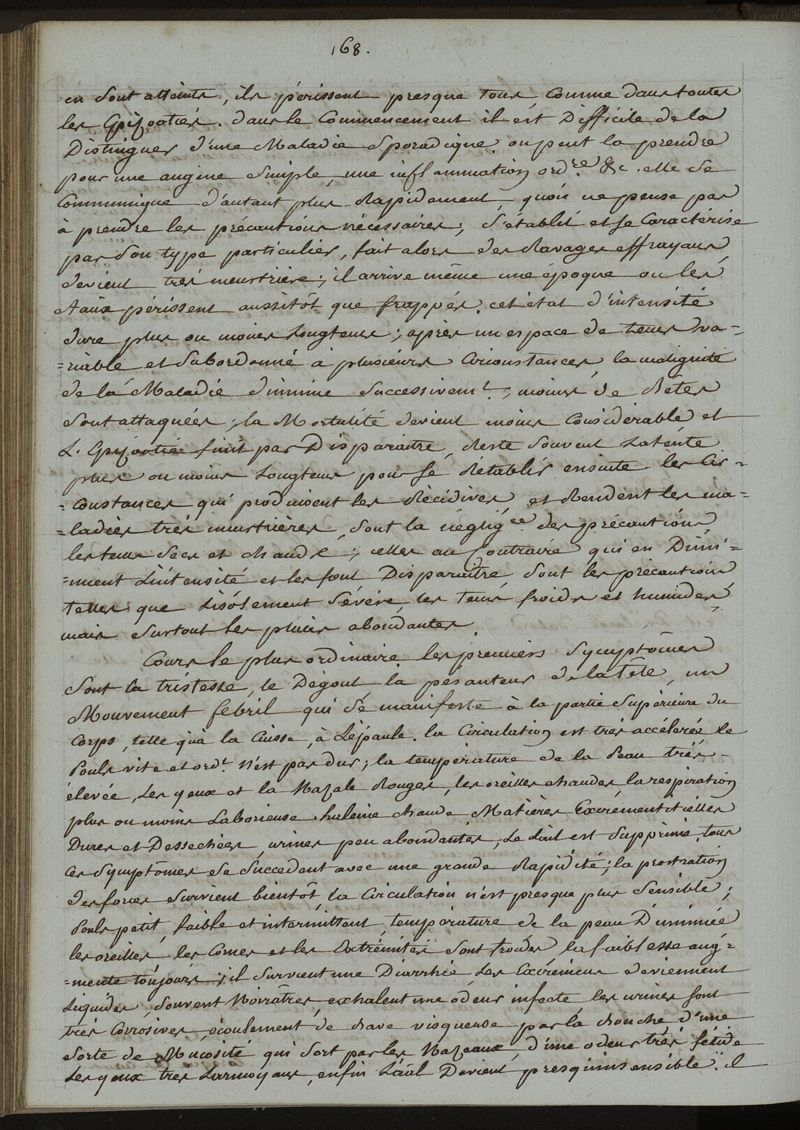 168.
en sont atteints, ils périssent presque tous, comme dans toutes
les Epizooties. dans le commencement il est Difficile de la
Distinguer d'une Maladie Sporadique. on peut la prendre
pour une angine simple, une inflammation ord.re &c. elle se
communique d'autant plus Rapidement, qu'on ne pense pas
à prendre les précautions nécessaires; s'établit et se caractérise
par son type particulier, fait alors des Ravages effrayans
devient très meurtrière; il arrive même une époque ou les
périssent aussitôt que frappés. cet état d'intensité
dure plus ou moins Longtems; après un espace de tems va-
=riable et Subordonné à plusieurs Circonstances, la malignité
de la Maladie diminue Successivem.t; moins de Bêtes
sont attaquées, la Mortalité devient moins Considérable et
L'Epizootie finit par Disparaitre, Reste Souvent Latente
plus ou moins Longtems pour se Rétablir ensuite. les Cir-
=constances qui produisent les Récidives et Rendent les ma-
=ladies très meurtrières, sont la néglig.ce des précautions,
les tems Secs et chauds; celles au Contraire qui en Dimi-
=nuent L'intensité et les font Disparaitre, sont les précautions
telles que L'isolement Sévère, les tems froids et humides,
mais surtout les pluies abondantes.
Cours le plus ordinaire les premiers Symptômes
sont la tristesse, le Dégout la pesanteur de la tête, un
Mouvement febril qui se manifeste à la partie Supérieure du
Corps, telle qu'à la Cuisse, à L'épaule. la Circulation est très accélérée, le
Pouls vite et ord.t n'est pas dur; la température de la Peau très-
élevée, Les yeux et la Nazale Rouges, les oreilles chaudes la respiration
plus ou moins Laborieuse haleine chaude Matières Excrémentitielles
Dures et Dessechées, urines peu abondantes, Le Lait est Supprimé, tous
ces Symptômes se Succedent avec une grande Rapidité; la prostration
des forces survient bientôt, la Circulation n'est presque plus Sensible;
Pouls petit, faible et intermittent, température de la peau Diminuée
les oreilles, les cornes et les Extrémités sont froides, la faiblesse aug-
=mente toujours; il survient une Diarrhée, Les Excrémens deviennent
Liquides, Souvent Noirâtres, exhalent une odeur infecte les urines sont
très Corrosives, écoulement de bave visqueuse par la bouche, d'une
sorte de Mucosité qui sort par les Nazeaux, d'une odeur très fétide
Les yeux très Larmoyans, enfin L'ail Devient presqu'insensible. il